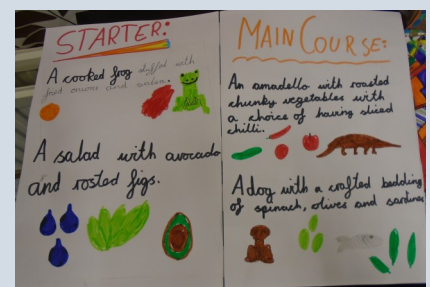 STARTER:
A cooked frog stuffed with
fried onions and
A salad with avocado
and rosted figs.
MAIN COURSE:
An amadello with roasted
chunky vegetables with
a choice of having sliced
chilli.
A dog with a crafted bedding
of spinach, olives and sardines